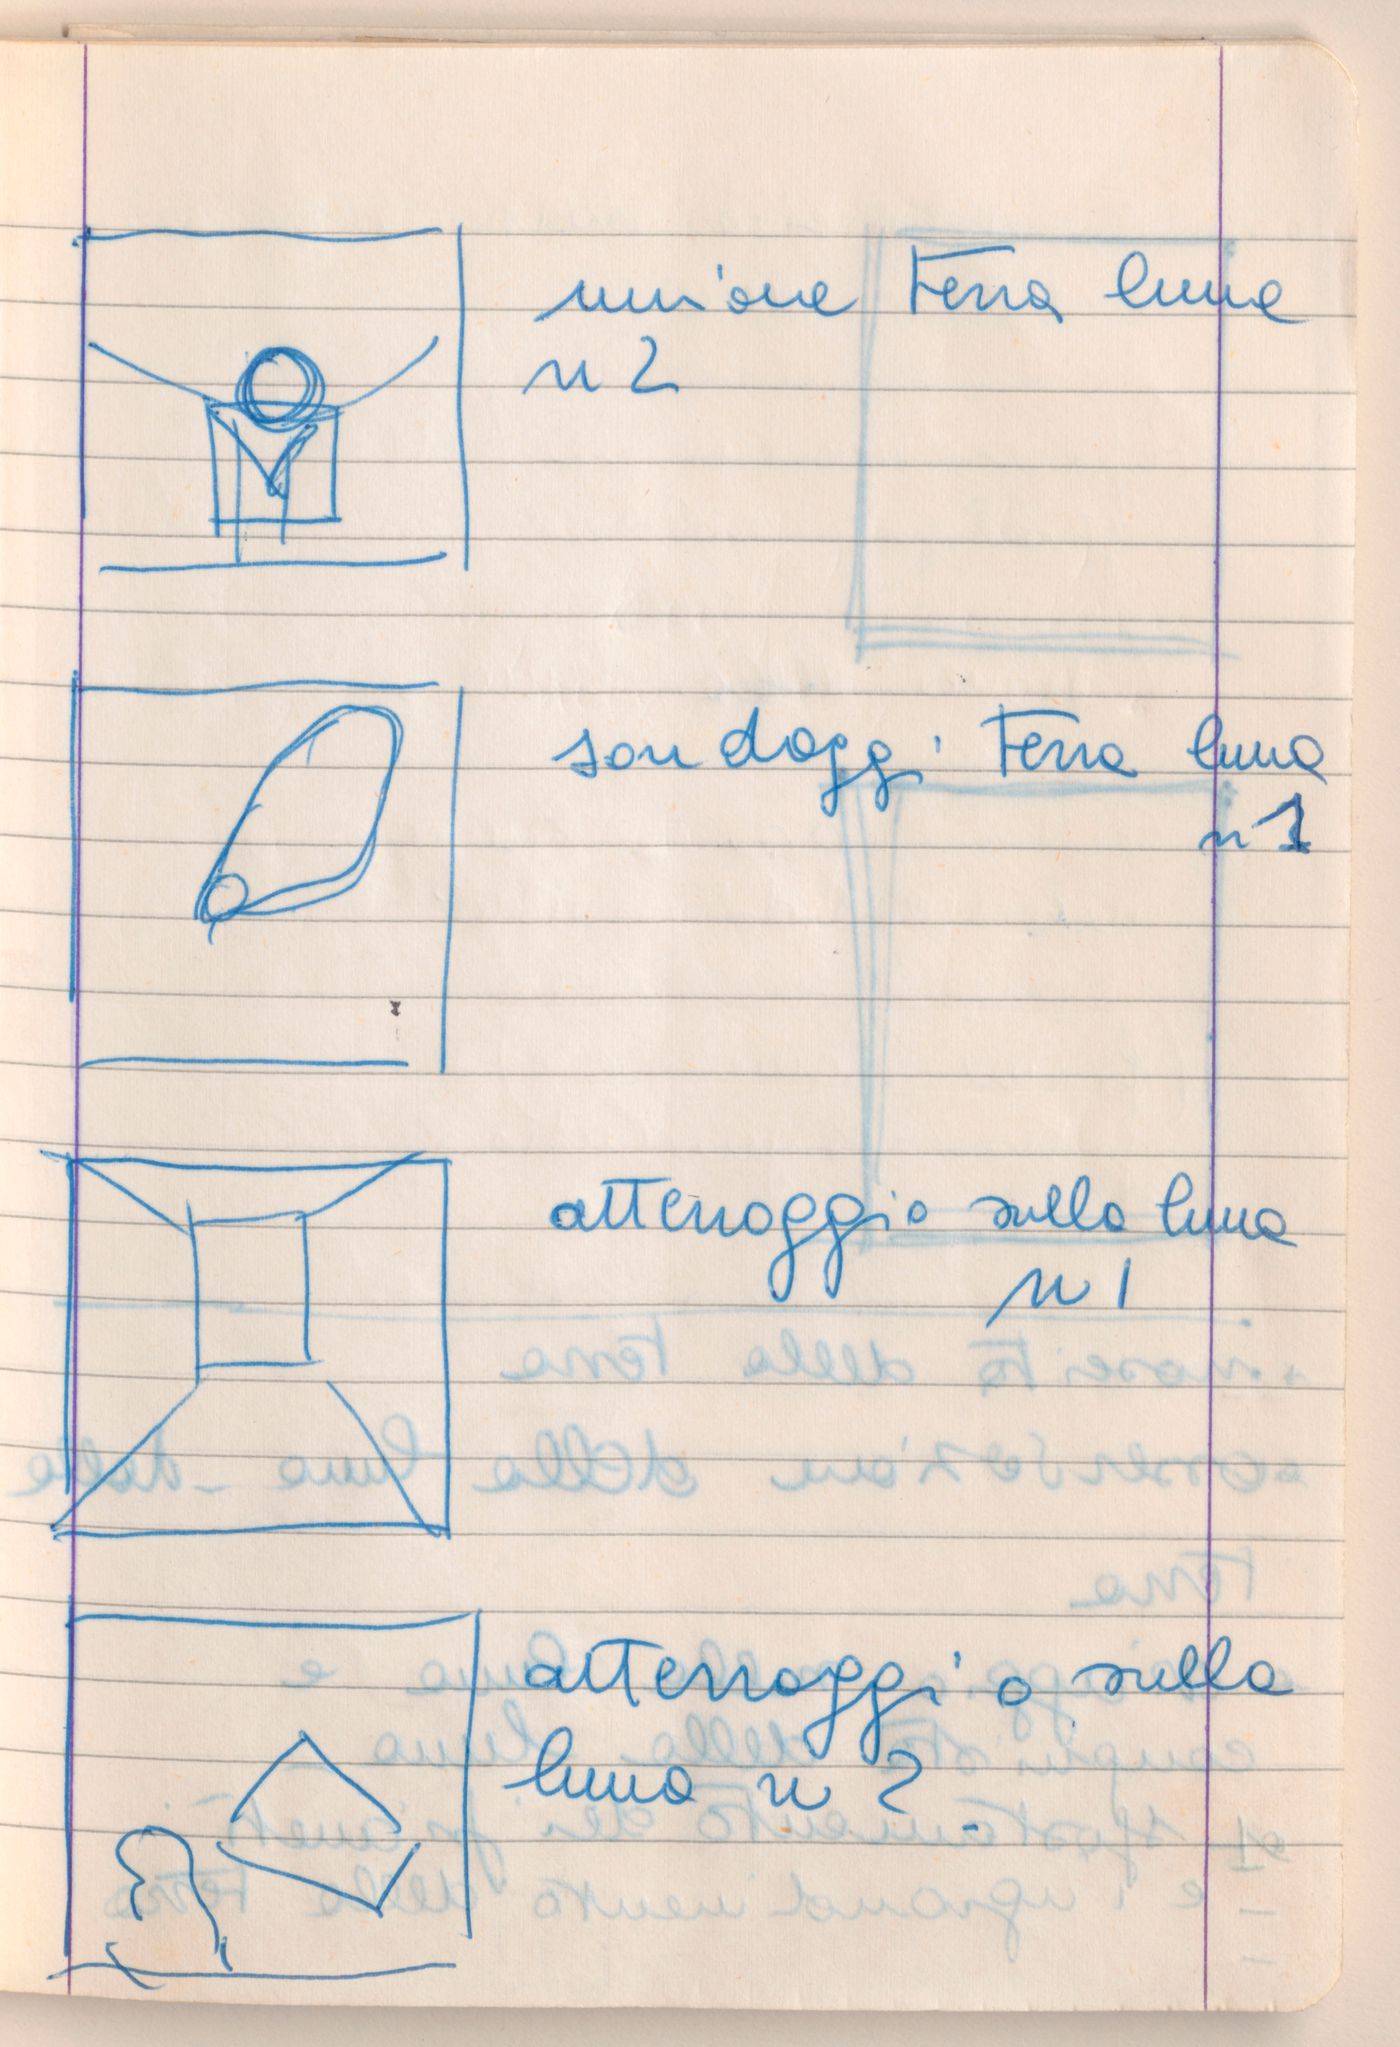 unione terra luna
n 2
sondaggi terra luna
n 1
atterraggio sulla luna
n 1
atterraggio sulla
luna n 2